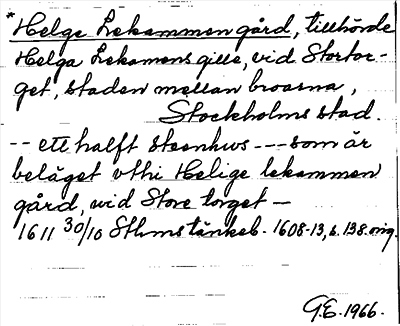 *Helge Lekammen gård, tillhörde
Helga Lekamens gille, vid Stortor-
get, staden mellan broarna,
Stockholms stad.
-- ett halft steenhws --- som är
beläget vthi Helige lekammen
gård, wid Store torget —
1611 30/10 Sthms tänkeb. 1608-13, s. 138 orig.
G.E. 1966.